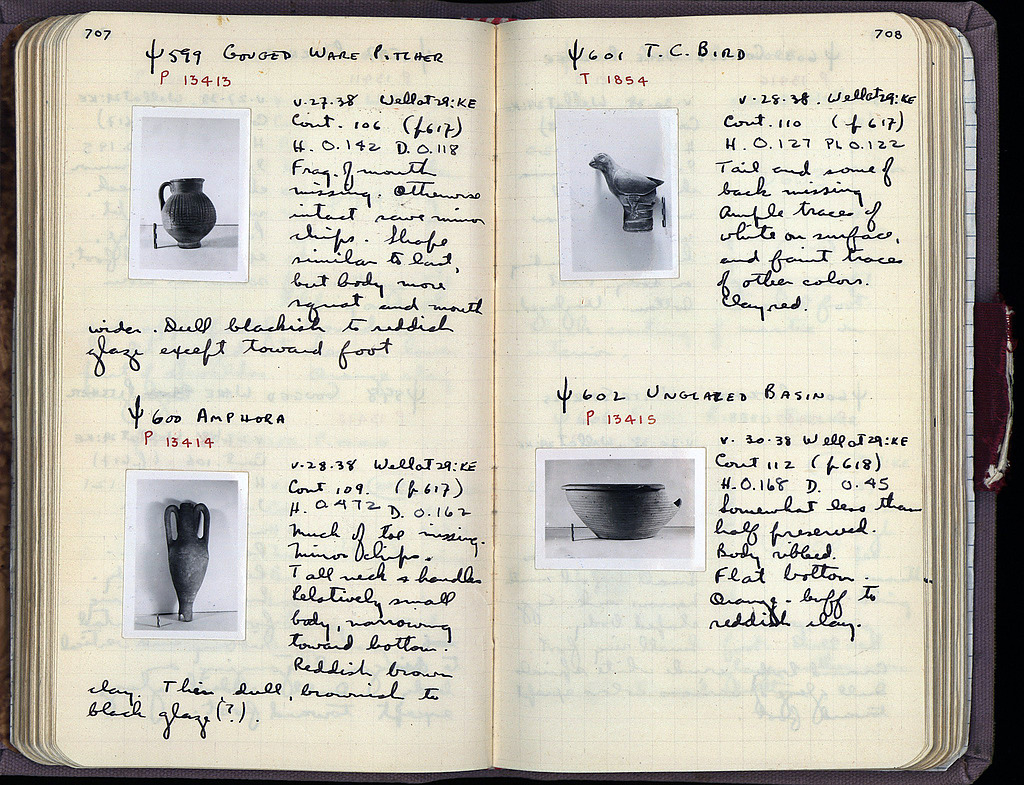 707
Ψ599 GOUGED WARE PITCHER
P 13413
V.27.38 Well at 29:KE
Cont. 106 (p 617)
H. 0.142 D. 0.118
Frag. of mouth
missing. Otherwise
intact save minor
chips. Shape
similar to last,
but body more
squat and mouth
wider. Dull blackish to reddish
glaze except toward foot
Ψ600 AMPHORA
P 13414
V.28.38 Well at 29:KE
Cont 109. (p 617)
H. 0.472 D. 0.162
Much of toe missing.
Minor chips.
Tall neck & handles
Relatively small
body, narrowing
toward bottom.
Reddish brown
clay. Thin, dull, brownish to
black glaze (?).
708
Ψ601 T.C. BIRD
T 1854
V.28.38. Well at 29:KE
Cont. 110 (p 617)
H. 0.127 PL 0.122
Tail and some of
back missing
Ample traces of
white on surface,
and faint traces
of other colors.
Clay red.
Ψ602 UNGLAZED BASIN
P 13415
V.30.38 Well at 29:KE
Cont 112 (p 618)
H. 0.168 D. 0.45
Somewhat less than
half preserved.
Body ribbed.
Flat bottom.
Orange-buff to
reddish clay.